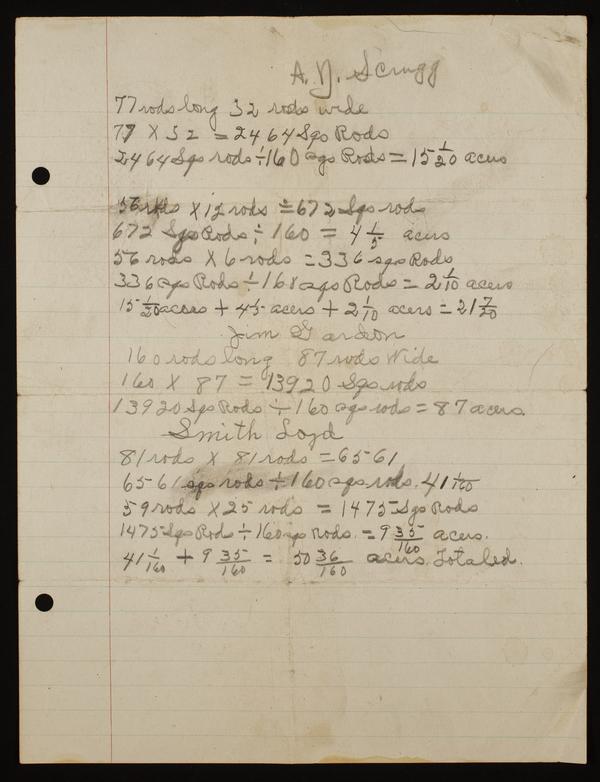 A. Y. Scrugg
77 rods long 32 rods wide
77 X 32 = 2464 Sqs Rods
2464 Sqs rods ÷ 160 sqs Rods = 15 1/20 acers
56 rods X 12 rods = 672 Sqs rods
672 Sqs Rods ÷ 160 = 4 1/5 acers
56 rods X 6 rods = 336 sqs Rods
336 sqs Rods ÷ 160 sqs Rods = 2 1/10 acers
15 1/20 acers + 4 1/5 acers + 2 1/10 acers = 21 7/20
Jim Gardeon
160 rods long 87 rods Wide
160 X 87 = 13920 Sqs rods
13920 Sqs Rods ÷ 160 sqs rods = 87 acers
Smith Loyd
81 rods X 81 rods = 6561
6561 sqs rods ÷ 160 sqs rods. 41 1/160
59 rods X 25 rods = 1475 Sqs Rods
1475 Sqs Rods ÷ 160 sqs rods. = 9 35/160 acers.
41 1/160 + 9 35/160 = 50 36/160 acers. Totaled.